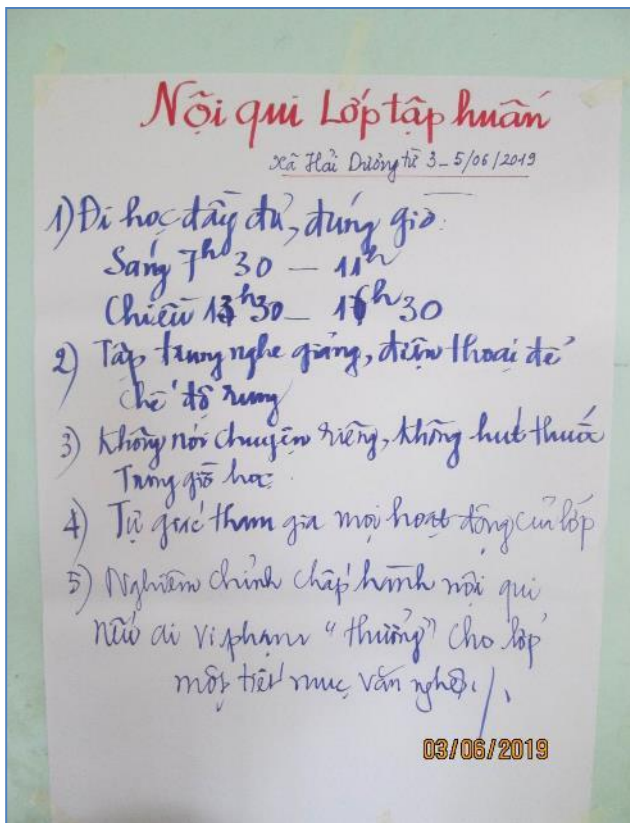 Nội qui Lớp tập huấn
xã Hải Dương từ 3-5/06/2019
1) Đi học đầy đủ, đúng giờ:
Sáng 7h30 - 11h
Chiều 13h30 - 16h30
2) Tập trung nghe giảng, điện thoại để
chế độ rung
3) Không nói chuyện riêng, không hút thuốc
Trong giờ học.
4) Tự giác tham gia mọi hoạt động của lớp
5) Nghiêm chỉnh chấp hành nội qui
nếu ai vi phạm "thưởng" cho lớp
một tiết mục văn nghệ./.
03/06/2019